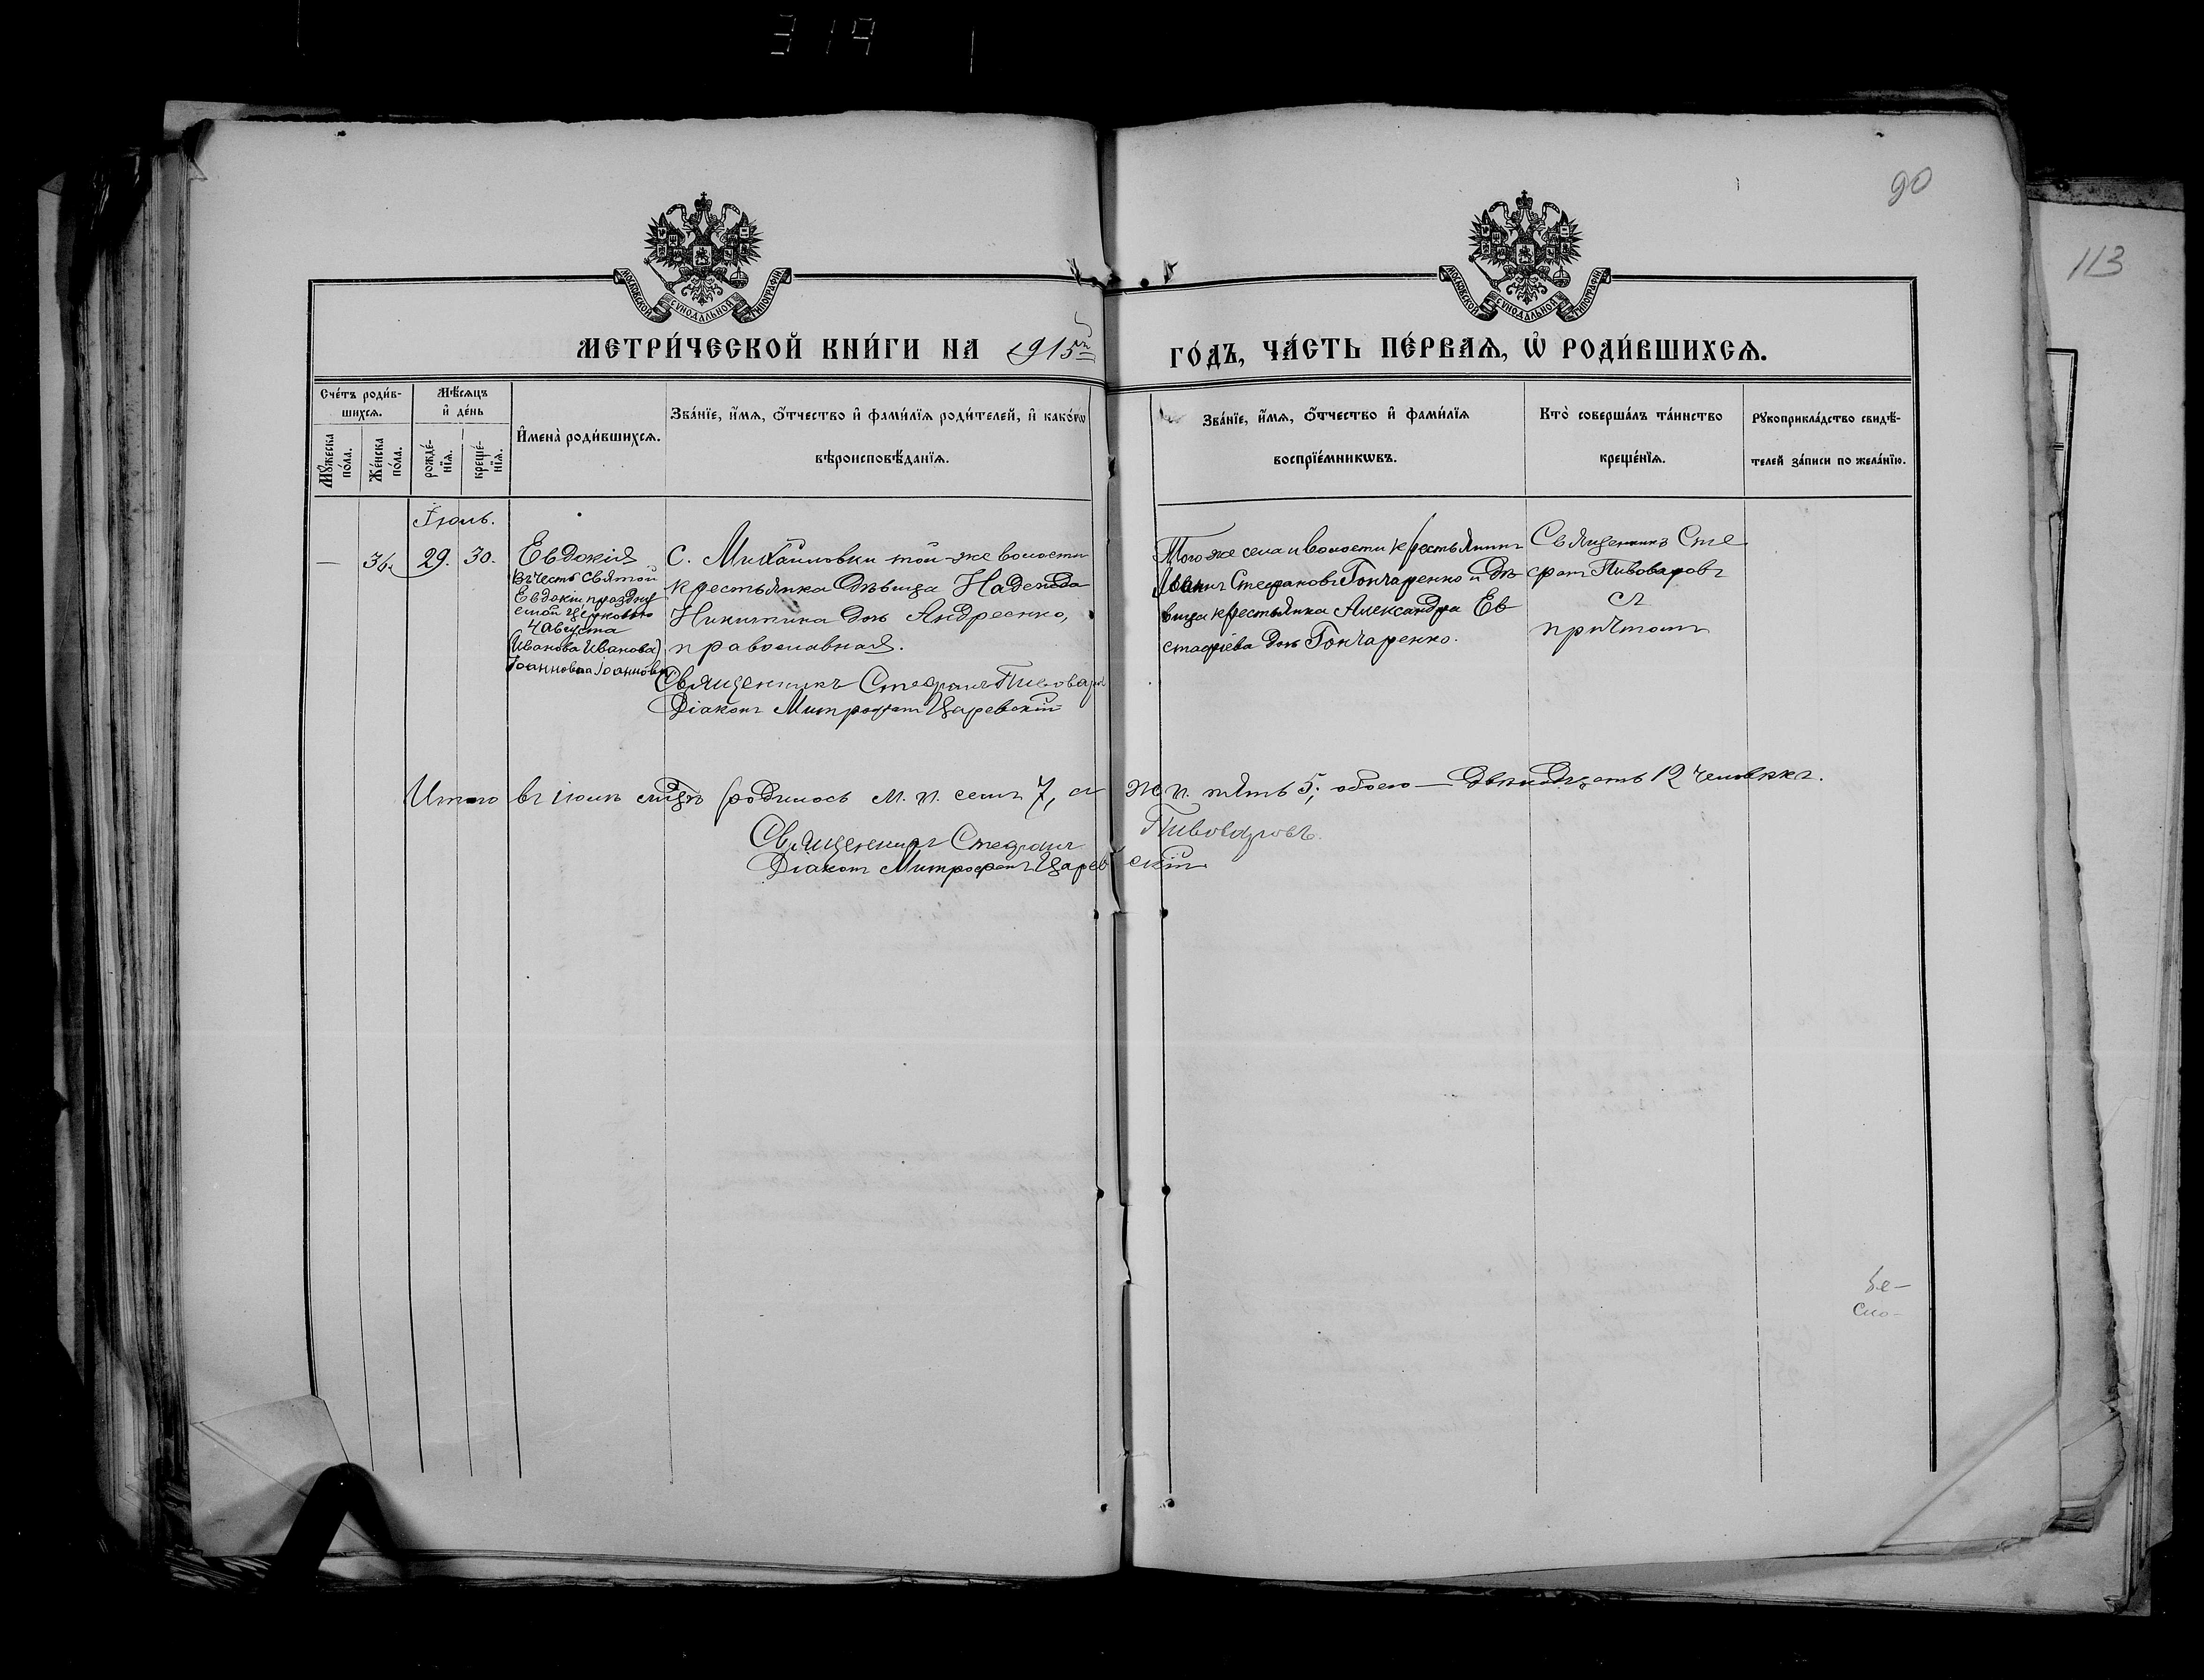 319
90
113
МОСКОВСКОЙ СѴНОДАЛЬНОЙ ТИПОГРАФІИ
МОСКОВСКОЙ СѴНОДАЛЬНОЙ ТИПОГРАФІИ
МЕТРИ́ЧЕСКОЙ КНИ́ГИ НА 1915й
ГО́ДЪ, ЧА́СТЬ ПЕ́РВАѦ, Ѡ РОДИ́ВШИХСѦ.
Сче́тъ роди́в-
шихсѧ.
Мѣ́сѧцъ
и҆ де́нь
Мꙋ́жеска
по́ла.
Же́нска
по́ла.
рожде́-
нїѧ.
креще́-
нїѧ.
И҆мена̀ роди́вшихсѧ.
Зва́нїе, и҆́мѧ, ѻ҆́тчество и҆ фами́лїѧ роди́телей, и҆ како́гѡ
вѣроисповѣ́данїѧ.
Зва́нїе, и҆́мѧ, ѻ҆́тчество и҆ фами́лїѧ
воспрїе́мникѡвъ.
Кто̀ соверша́лъ та́инство
креще́нїѧ.
Рꙋкоприкла́дство свидѣ́-
телей за́писи по жела́нїю.
Іюль.
— 34 29. 30.
Евдокія
въ честь святой
Евдокіи праздну
емой церковью
4 Августа
(Иванова Иванова)
Іоаннова Іоаннова
С. Михайловки той-же волости
крестьянка дѣвица Надежда
Никитина дочь Андреенко,
православная.
Священникъ Стефанъ Пивоваровъ
Діаконъ Митрофанъ Царевскій
Того же села и волости крестьянинъ
Іоаннъ Стефановъ Гончаренко и дѣ
вица крестьянка Александра Ев
стафіева дочь Гончаренко.
Священникъ Сте
фанъ Пивоваровъ
съ
причтомъ
Итого въ іюлѣ мѣсяцѣ родилось м. п. семь 7, а ж. п. пять 5; обоего — двѣнадцать 12 человѣкъ.
Священникъ Стефанъ Пивоваровъ.
Діаконъ Митрофанъ Царевскій